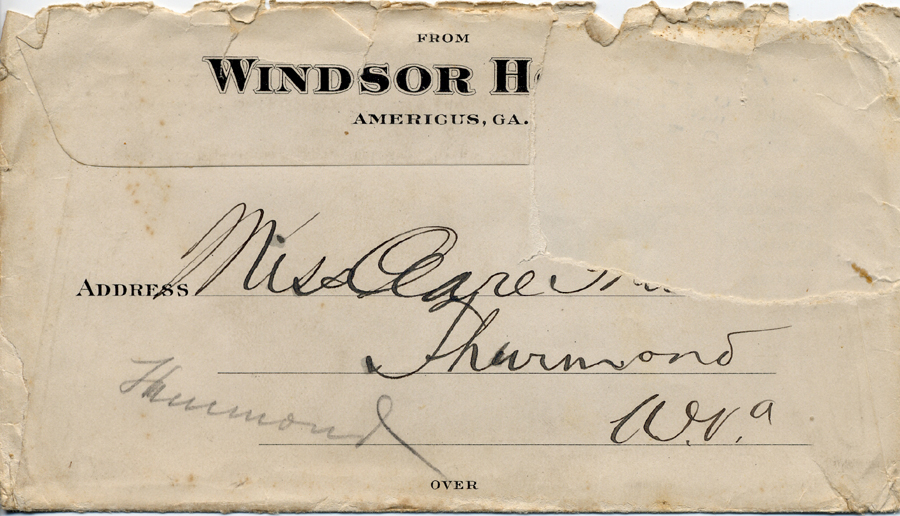 FROM
WINDSOR H
AMERICUS, GA.
ADDRESS Miss Clare
Thurmond
W.Va
Hammond
OVER